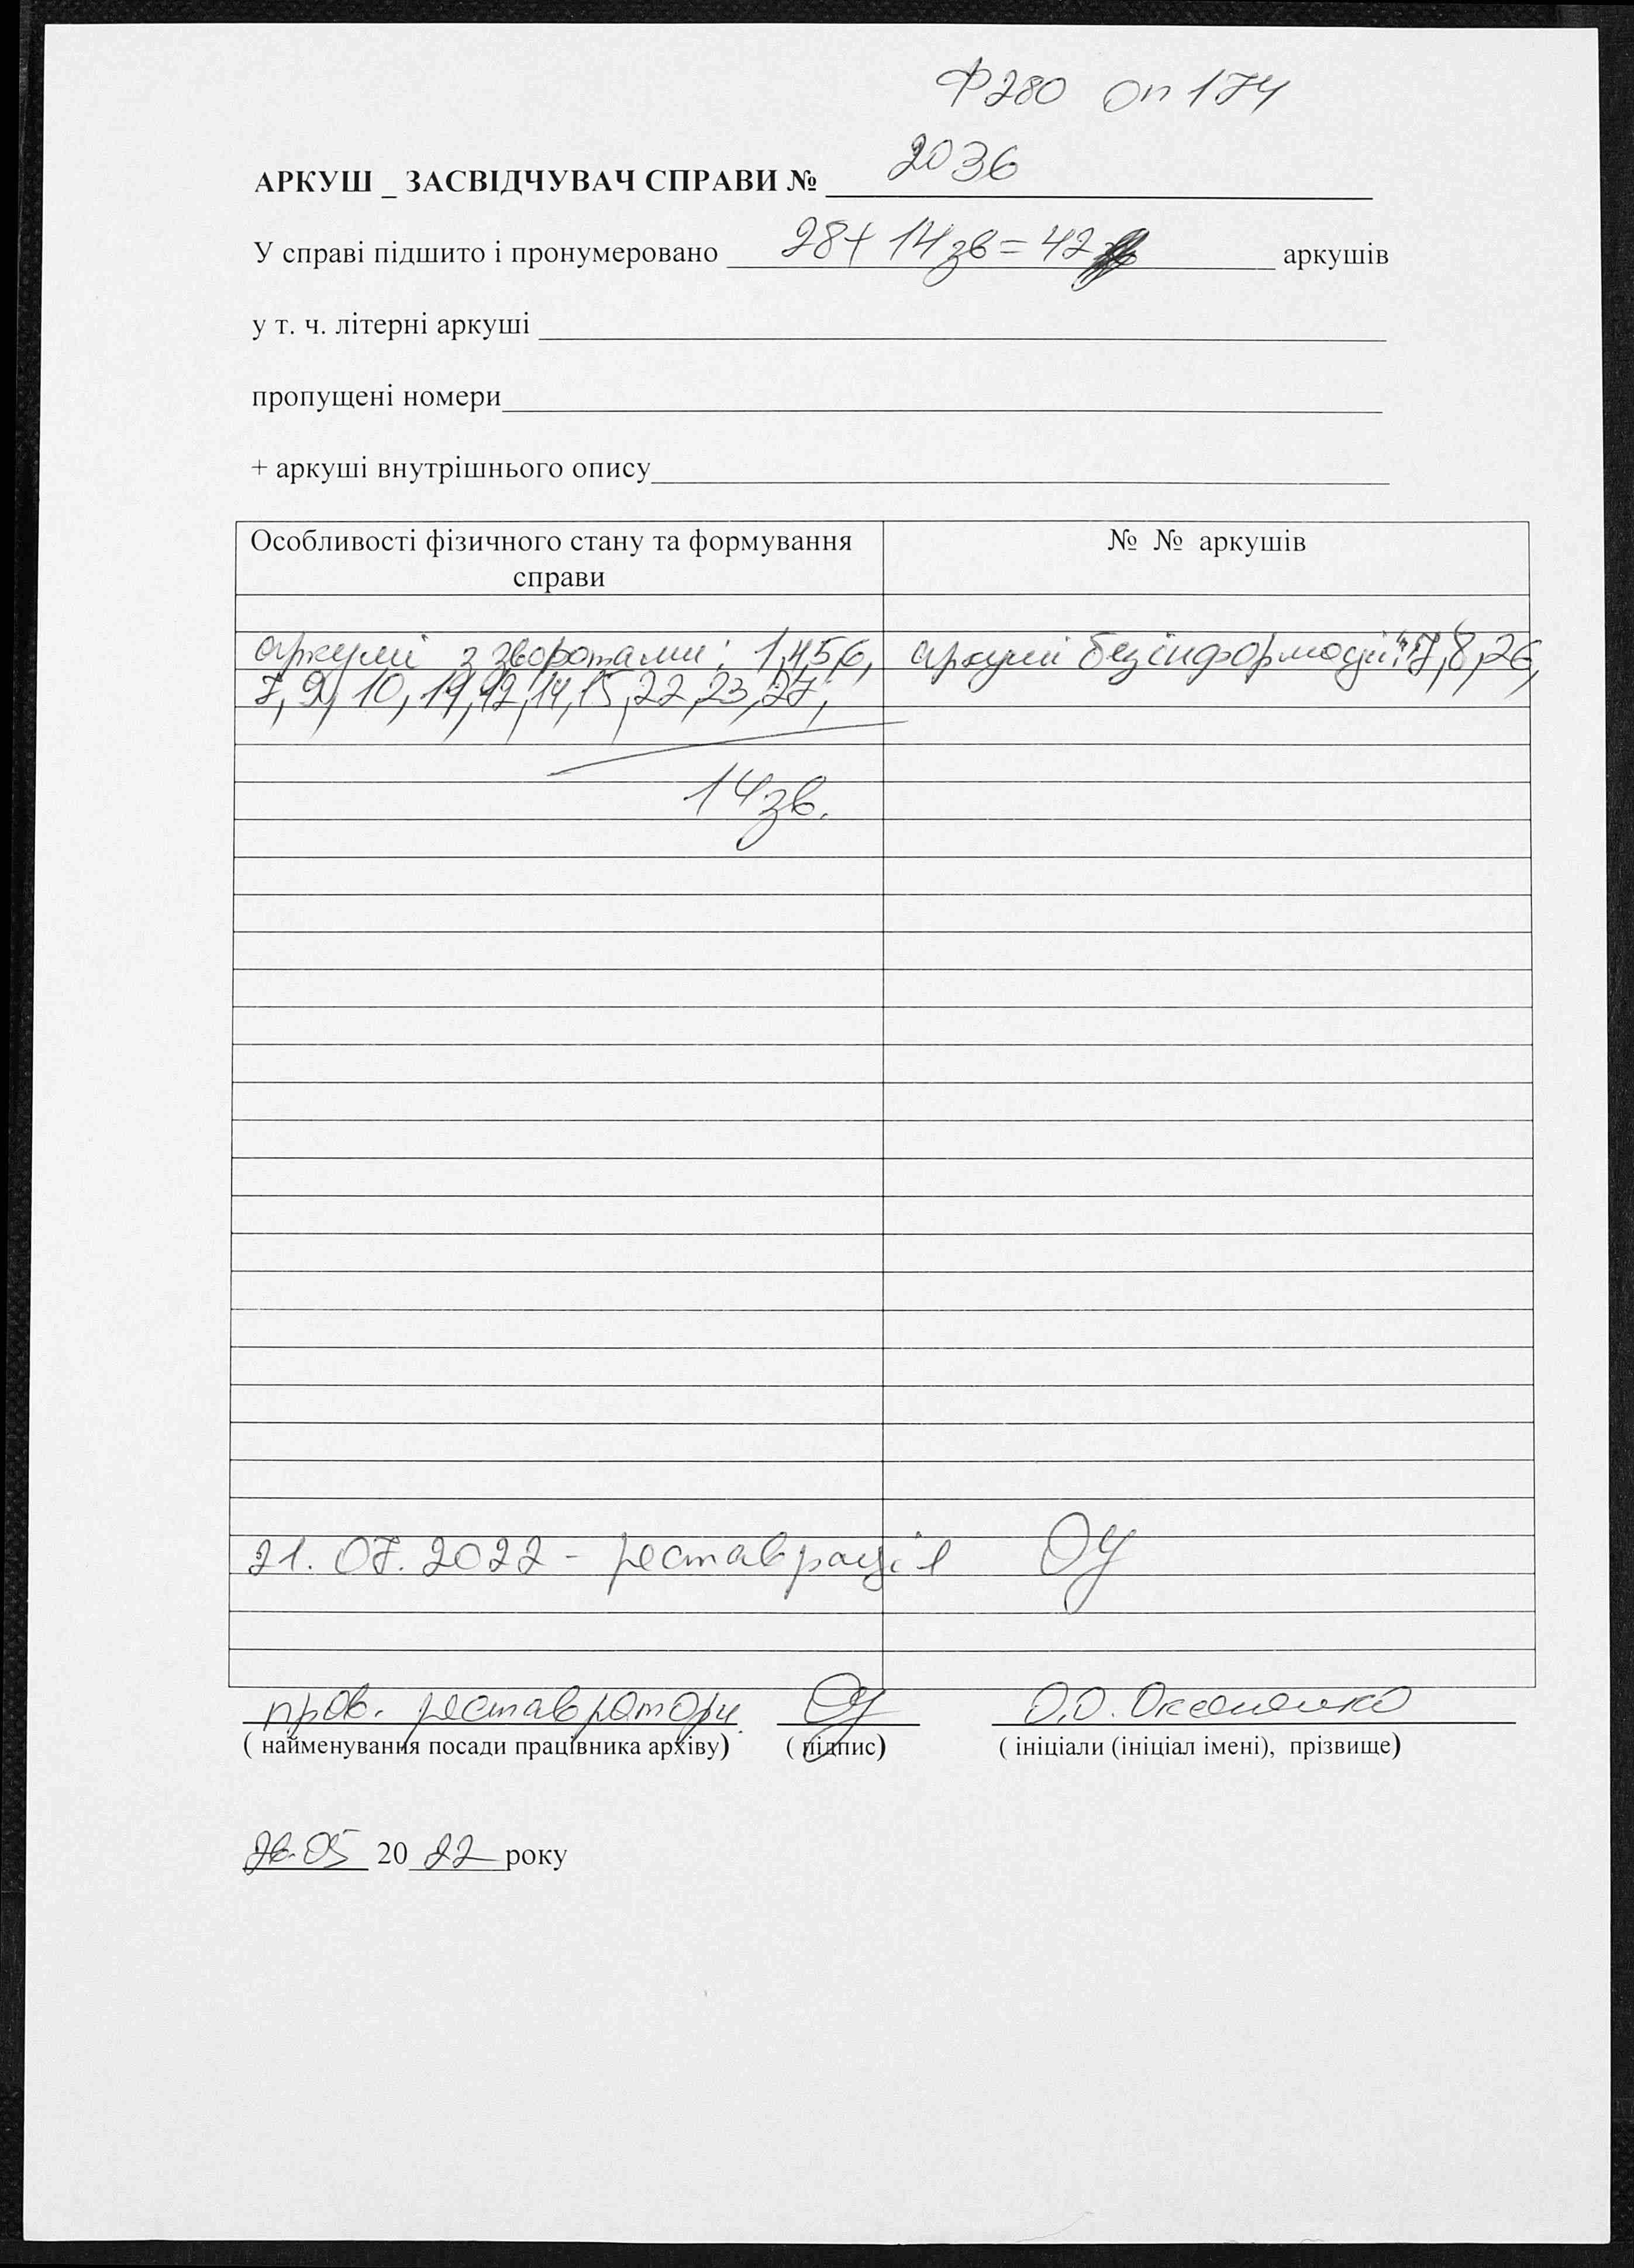 Ф280 Оп 174
2036
АРКУШ _ ЗАСВІДЧУВАЧ СПРАВИ №
У справі підшито і пронумеровано 28+ 14зв = 42 аркушів
у т. ч. літерні аркуші
пропущені номери
+ аркуші внутрішнього опису
Особливості фізичного стану та формування справи
№ № аркушів
аркуші з зворотами: 1,4,5,6,
7, 9, 10, 11, 12, 14, 15, 22, 23, 27,
14зв.
аркуші без інформації: 7, 8, 26,
21. 07. 2022 - реставрація
пров. реставратор О.О.
( найменування посади працівника архіву) ( підпис) ( ініціали (ініціал імені), прізвище)
26.05 2022 року